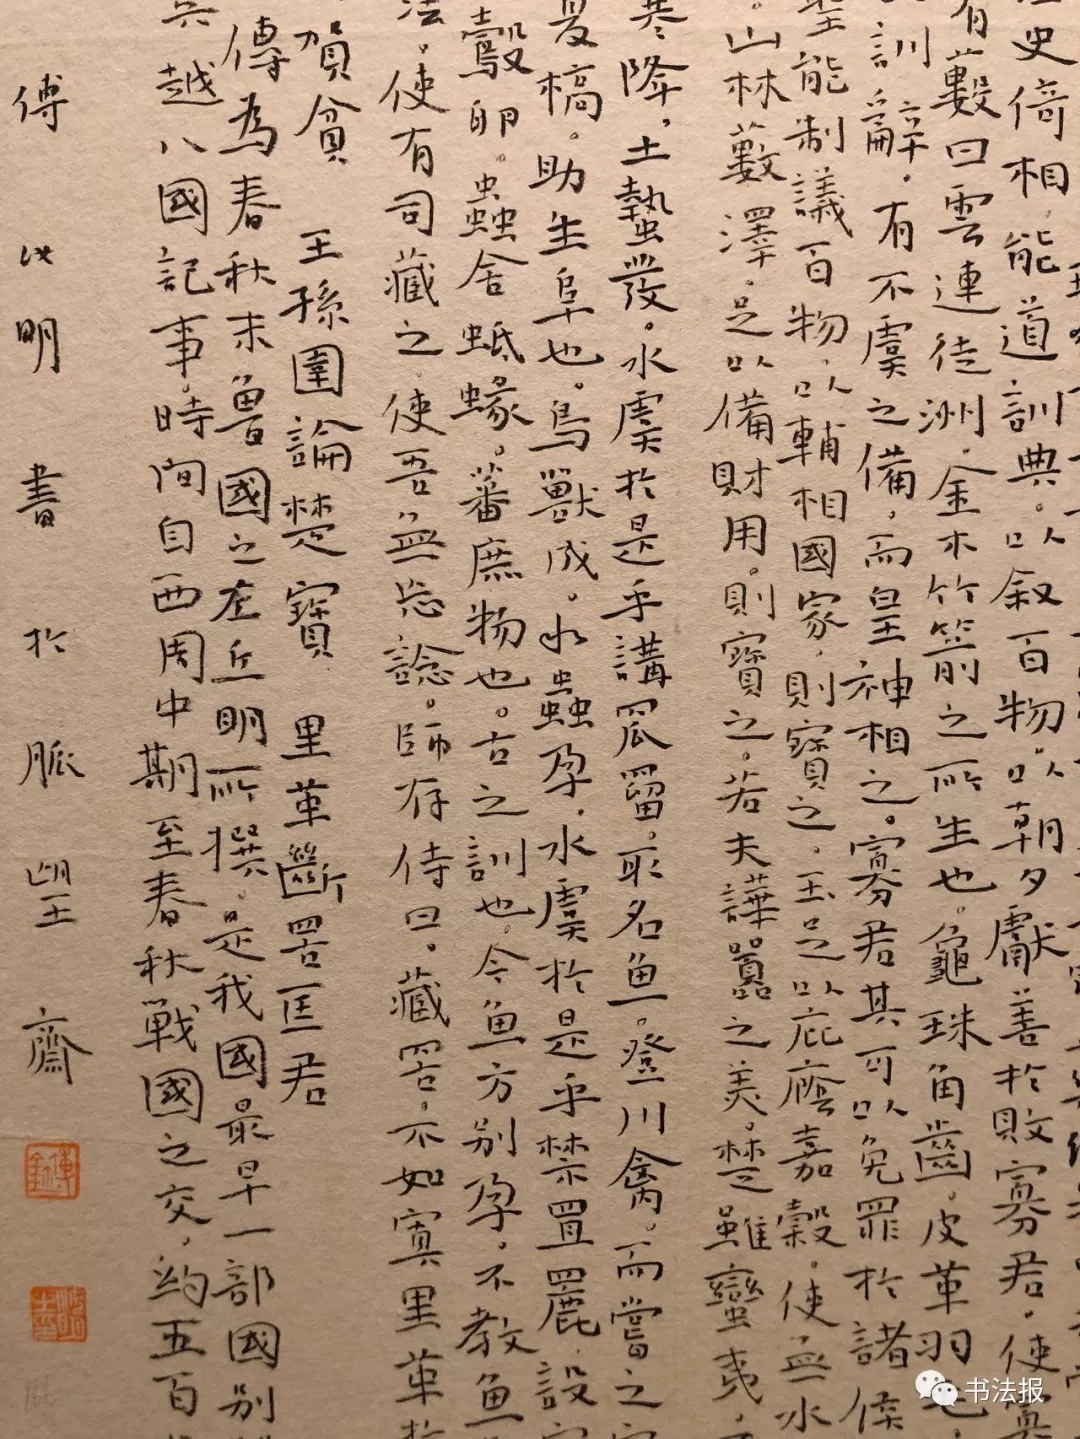 史倚相能道訓典以叙百物以朝夕獻善於敗寡君使寡
有藪曰雲連徒洲金木竹箭之所生也龜珠角齒皮革羽毛
訓辭有不虞之備而皇神相之寡君其可以免罪於諸侯
聖能制議百物以輔相國家則寶之玉足以庇廕嘉穀使無水
山林藪澤足以備財用則寶之若夫譁囂之美楚雖蠻夷
寒降土蟄發水虞於是乎講罛罶取名魚登川禽而嘗之
夏槁助生阜也鳥獸成水蟲孕水虞於是乎禁罝䍡設
鷇卵蟲舍蚳蝝蕃庶物也古之訓也今魚方别孕不教魚
法使有司藏之使吾無忘諗師存侍曰藏罟不如寘里革於
賀貧 王孫圉論楚寶 里革斷罟匡君
傳為春秋末魯國之左丘明所撰是我國最早一部國别
越八國記事時間自西周中期至春秋戰國之交約五百
傅 明 書 於 脈 望 齋
书法报